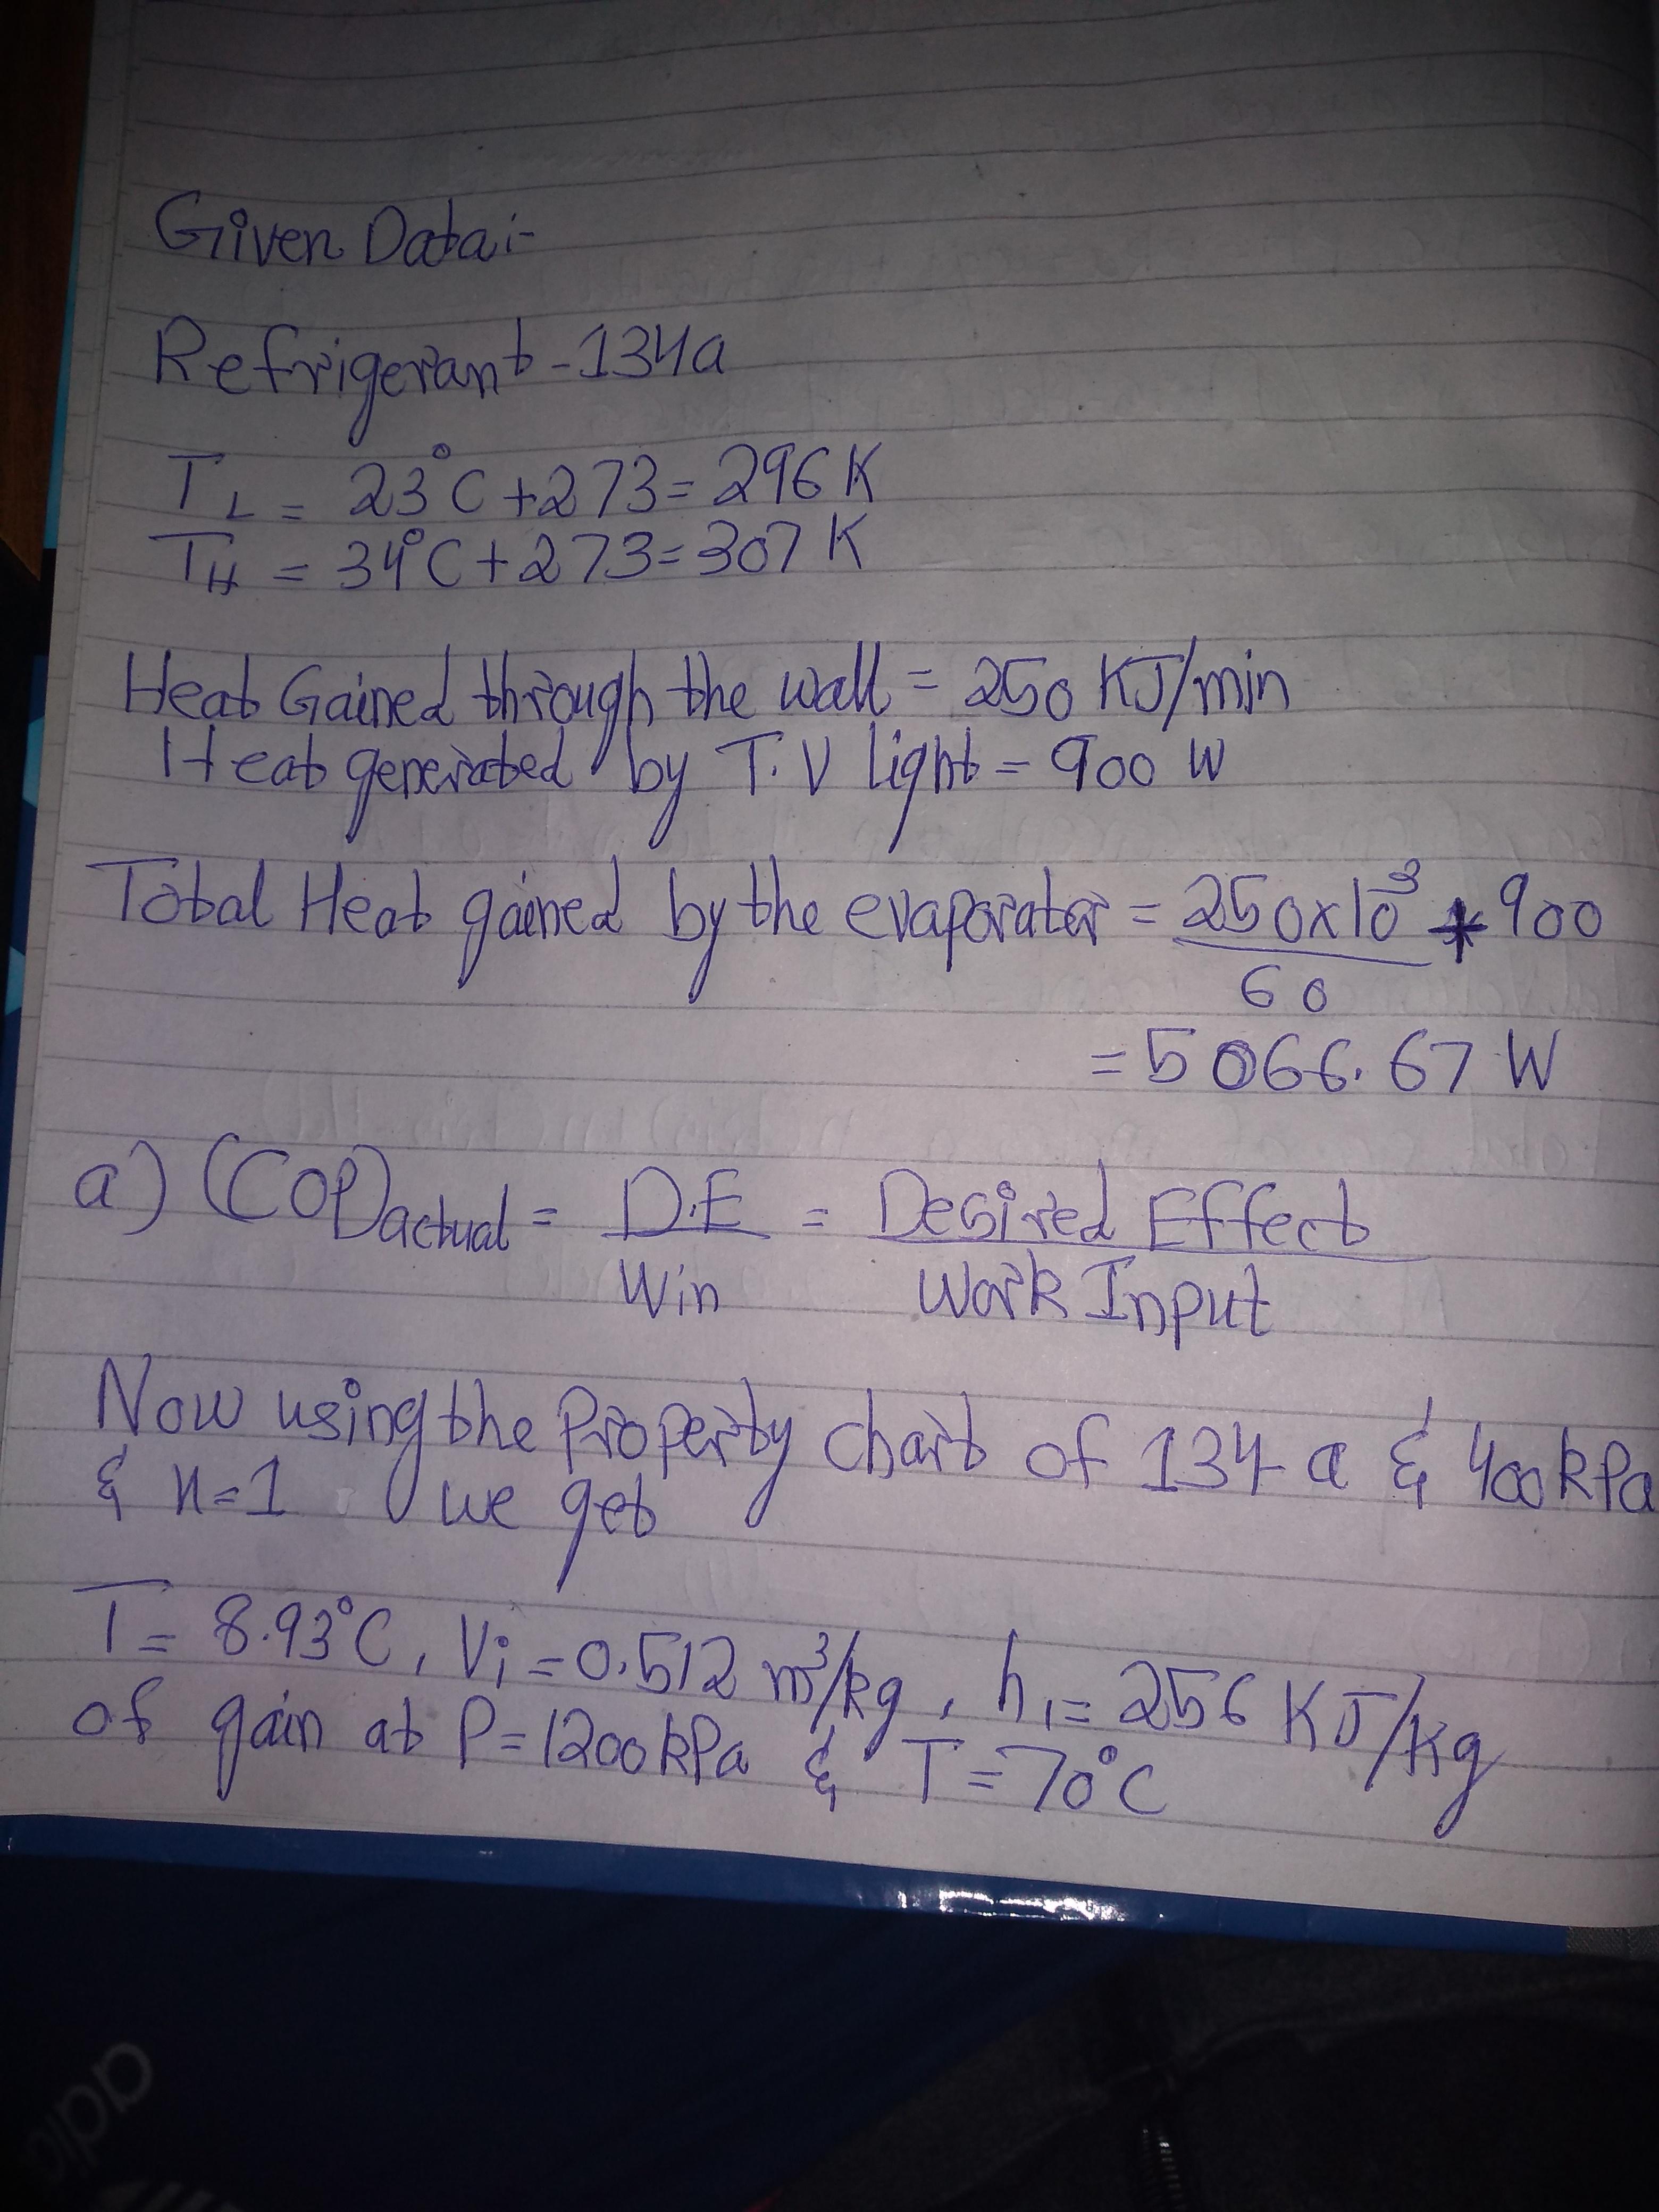 Given Data:-
Refrigerant - 134a
T_L = 23°C + 273 = 296 K
T_H = 34°C + 273 = 307 K
Heat Gained through the wall = 250 KJ/min
Heat generated by T.V light = 900 W
Total Heat gained by the evaporater = 250x10³/60 + 900
= 5066.67 W
a) (COP)actual = D.E/Win = Desired Effect/Work Input
Now using the Property chart of 134-a & 400kPa
& x=1 we get
T = 8.93°C, V₁ = 0.512 m³/kg, h₁ = 256 KJ/kg
of gain at P=1200kPa & T=70°C
adid